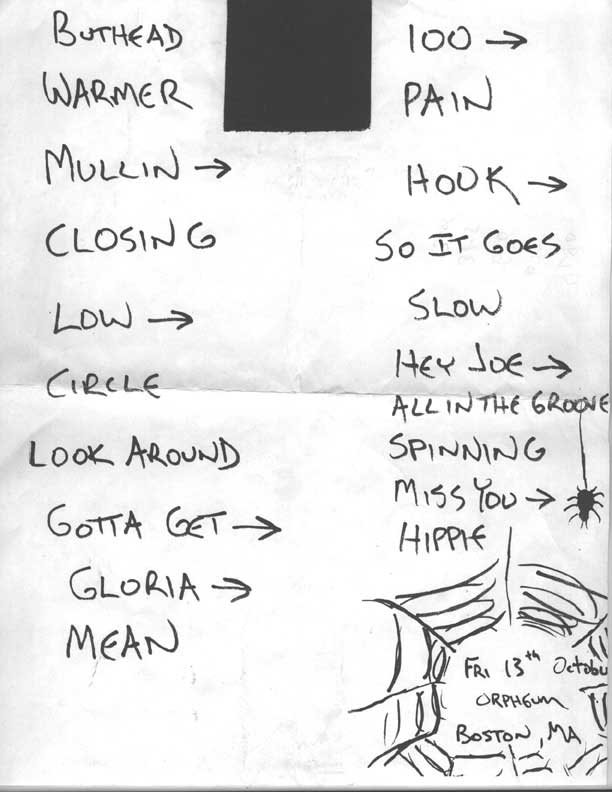 BUTHEAD
WARMER
MULLIN →
CLOSING
LOW →
CIRCLE
LOOK AROUND
GOTTA GET →
GLORIA →
MEAN
100 →
PAIN
HOOK →
SO IT GOES
SLOW
HEY JOE →
ALL IN THE GROOVE
SPINNING
MISS YOU →
HIPPIE
FRI 13th Octobu
ORPHEUM
BOSTON, MA